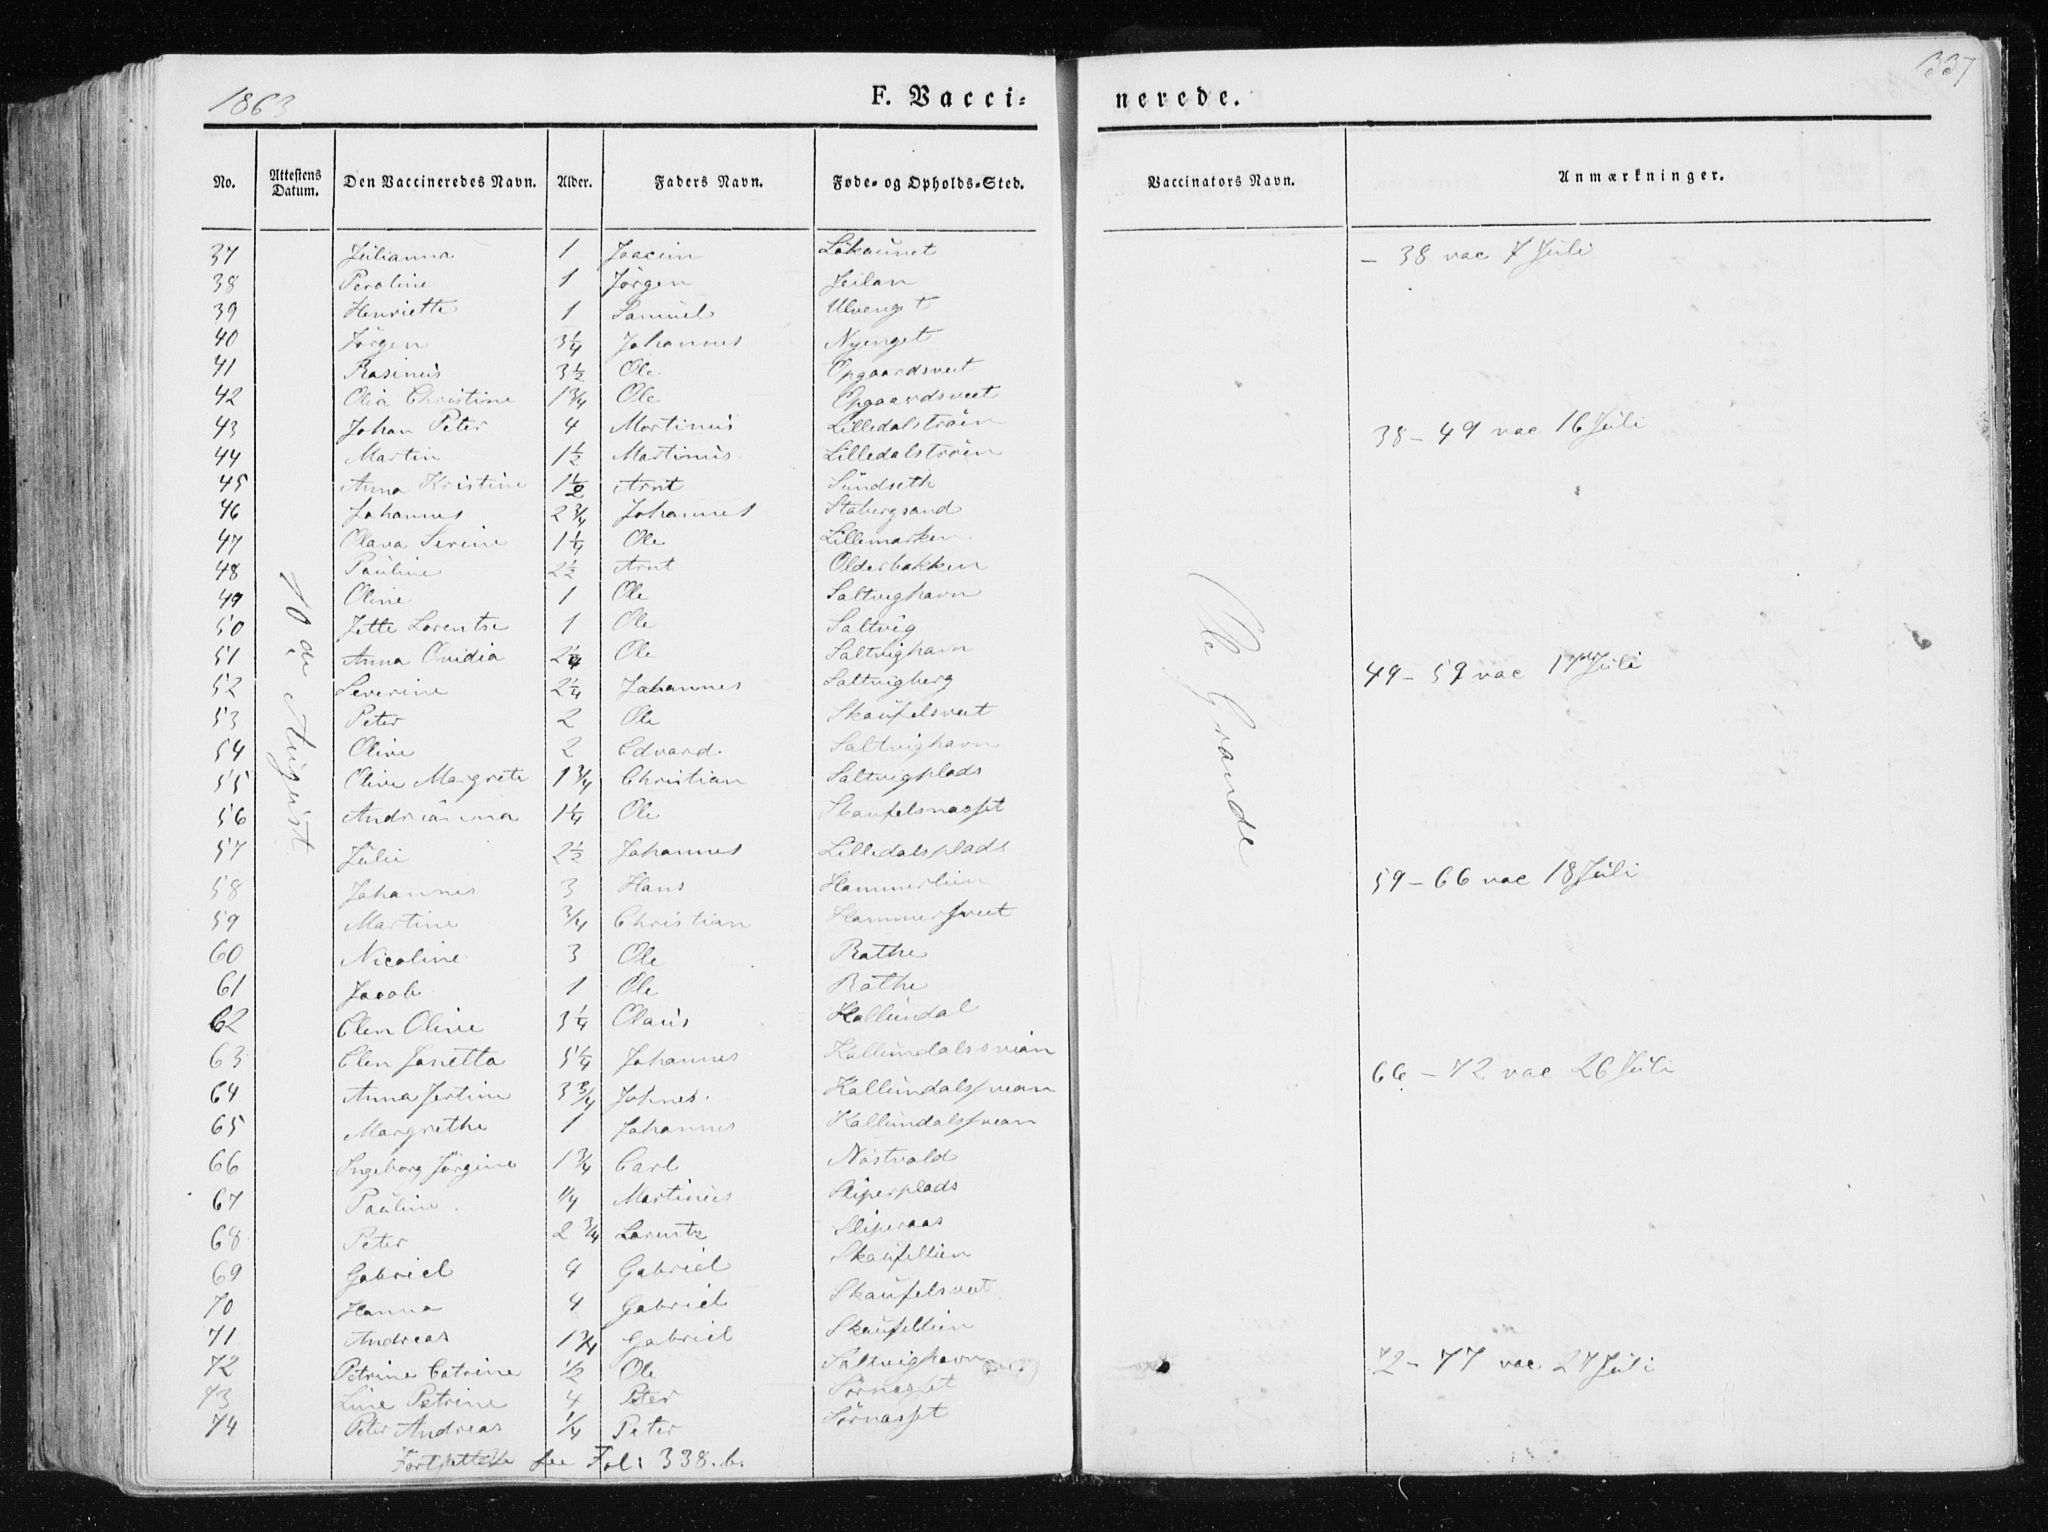 1863
F. Vacci=
nerede.
337
No.
Attestens Datum.
Den Vaccineredes Navn.
Alder.
Faders Navn.
Føde- og Opholds-Sted.
Vaccinators Navn.
Anmærkninger.
37 Julianna 1 Joacim Løkaunet
38 Peroline 1 Jørgen Jeilan
39 Henriette 1 Samuel Ulvenget
40 Jørgen 3 1/4 Johannes Nyenget
41 Rasinus 3 1/2 Ole Opgaardsveet
42 Olia Christine 1 3/4 Ole Opgaardsveet
43 Johan Peter 4 Martinus Lilledalstrøen
44 Martin 1 1/2 Martinus Lilledalstrøen
45 Anna Kristine 1 1/2 Arnt Sundseth
46 Johannes 2 3/4 Johannes Stabergsand
47 Olava Serine 1 1/4 Ole Lillemarken
48 Pauline 2 1/2 Arnt Olderbakken
49 Oline 1 Ole Saltvighavn
50 Jette Lorentse 1 Ole Saltvig
51 Anna Ovidia 2 1/4 Ole Saltvighavn
52 Severine 2 1/4 Johannes Saltvigberg
53 Peter 2 Ole Skaufelsveet
54 Olive 2 Edvard. Saltvighavn
55 Olive Margrete 1 3/4 Christian Saltvigplads
56 Andrianna 1 1/4 Ole Skaufelsnasset
57 Julie 2 1/2 Johannes Lilledalsplads
58 Johannes 3 Hans Hammerlien
59 Martine 3/4 Christian Hammersveet
60 Nicoline 3 Ole Rathe
61 Jacob 1 Ole Rathe
62 Elen Oline 3 1/4 Claus Kallundal
63 Elen Janetta 5 1/4 Johannes Kallundalssvian
64 Anna Jertine 3 3/4 Johnes. Kallundalssvean
65 Margrethe 1 Johannes Kallundalssvean
66 Ingeborg Jørgine 1 3/4 Carl Nøstvold
67 Pauline. 1/4 Martinus Sliperplads
68 Peter 2 3/4 Lorentz Sliperaas
69 Gabriel 4 Gabriel Skaufellien
70 Hanna 4 Gabriel Skaufelsveet
71 Andreas 1 3/4 Gabriel Skaufellien
72 Petrine Catrine 1/2 Ole Saltvighavn
73 Line Petrine 4 Peter Sørnasset
74 Peter Andreas 1/4 Peter Sørnasset
Fortsettelse see Fol: 338.b.
10de August
Ole Grande
- 38 vac 7 Juli
38 - 49 vac 16 Juli
49 - 59 vac 17de Juli
59 - 66 vac 18 Juli
66 - 72 vac 26 Juli
72 - 77 vac 27 Juli